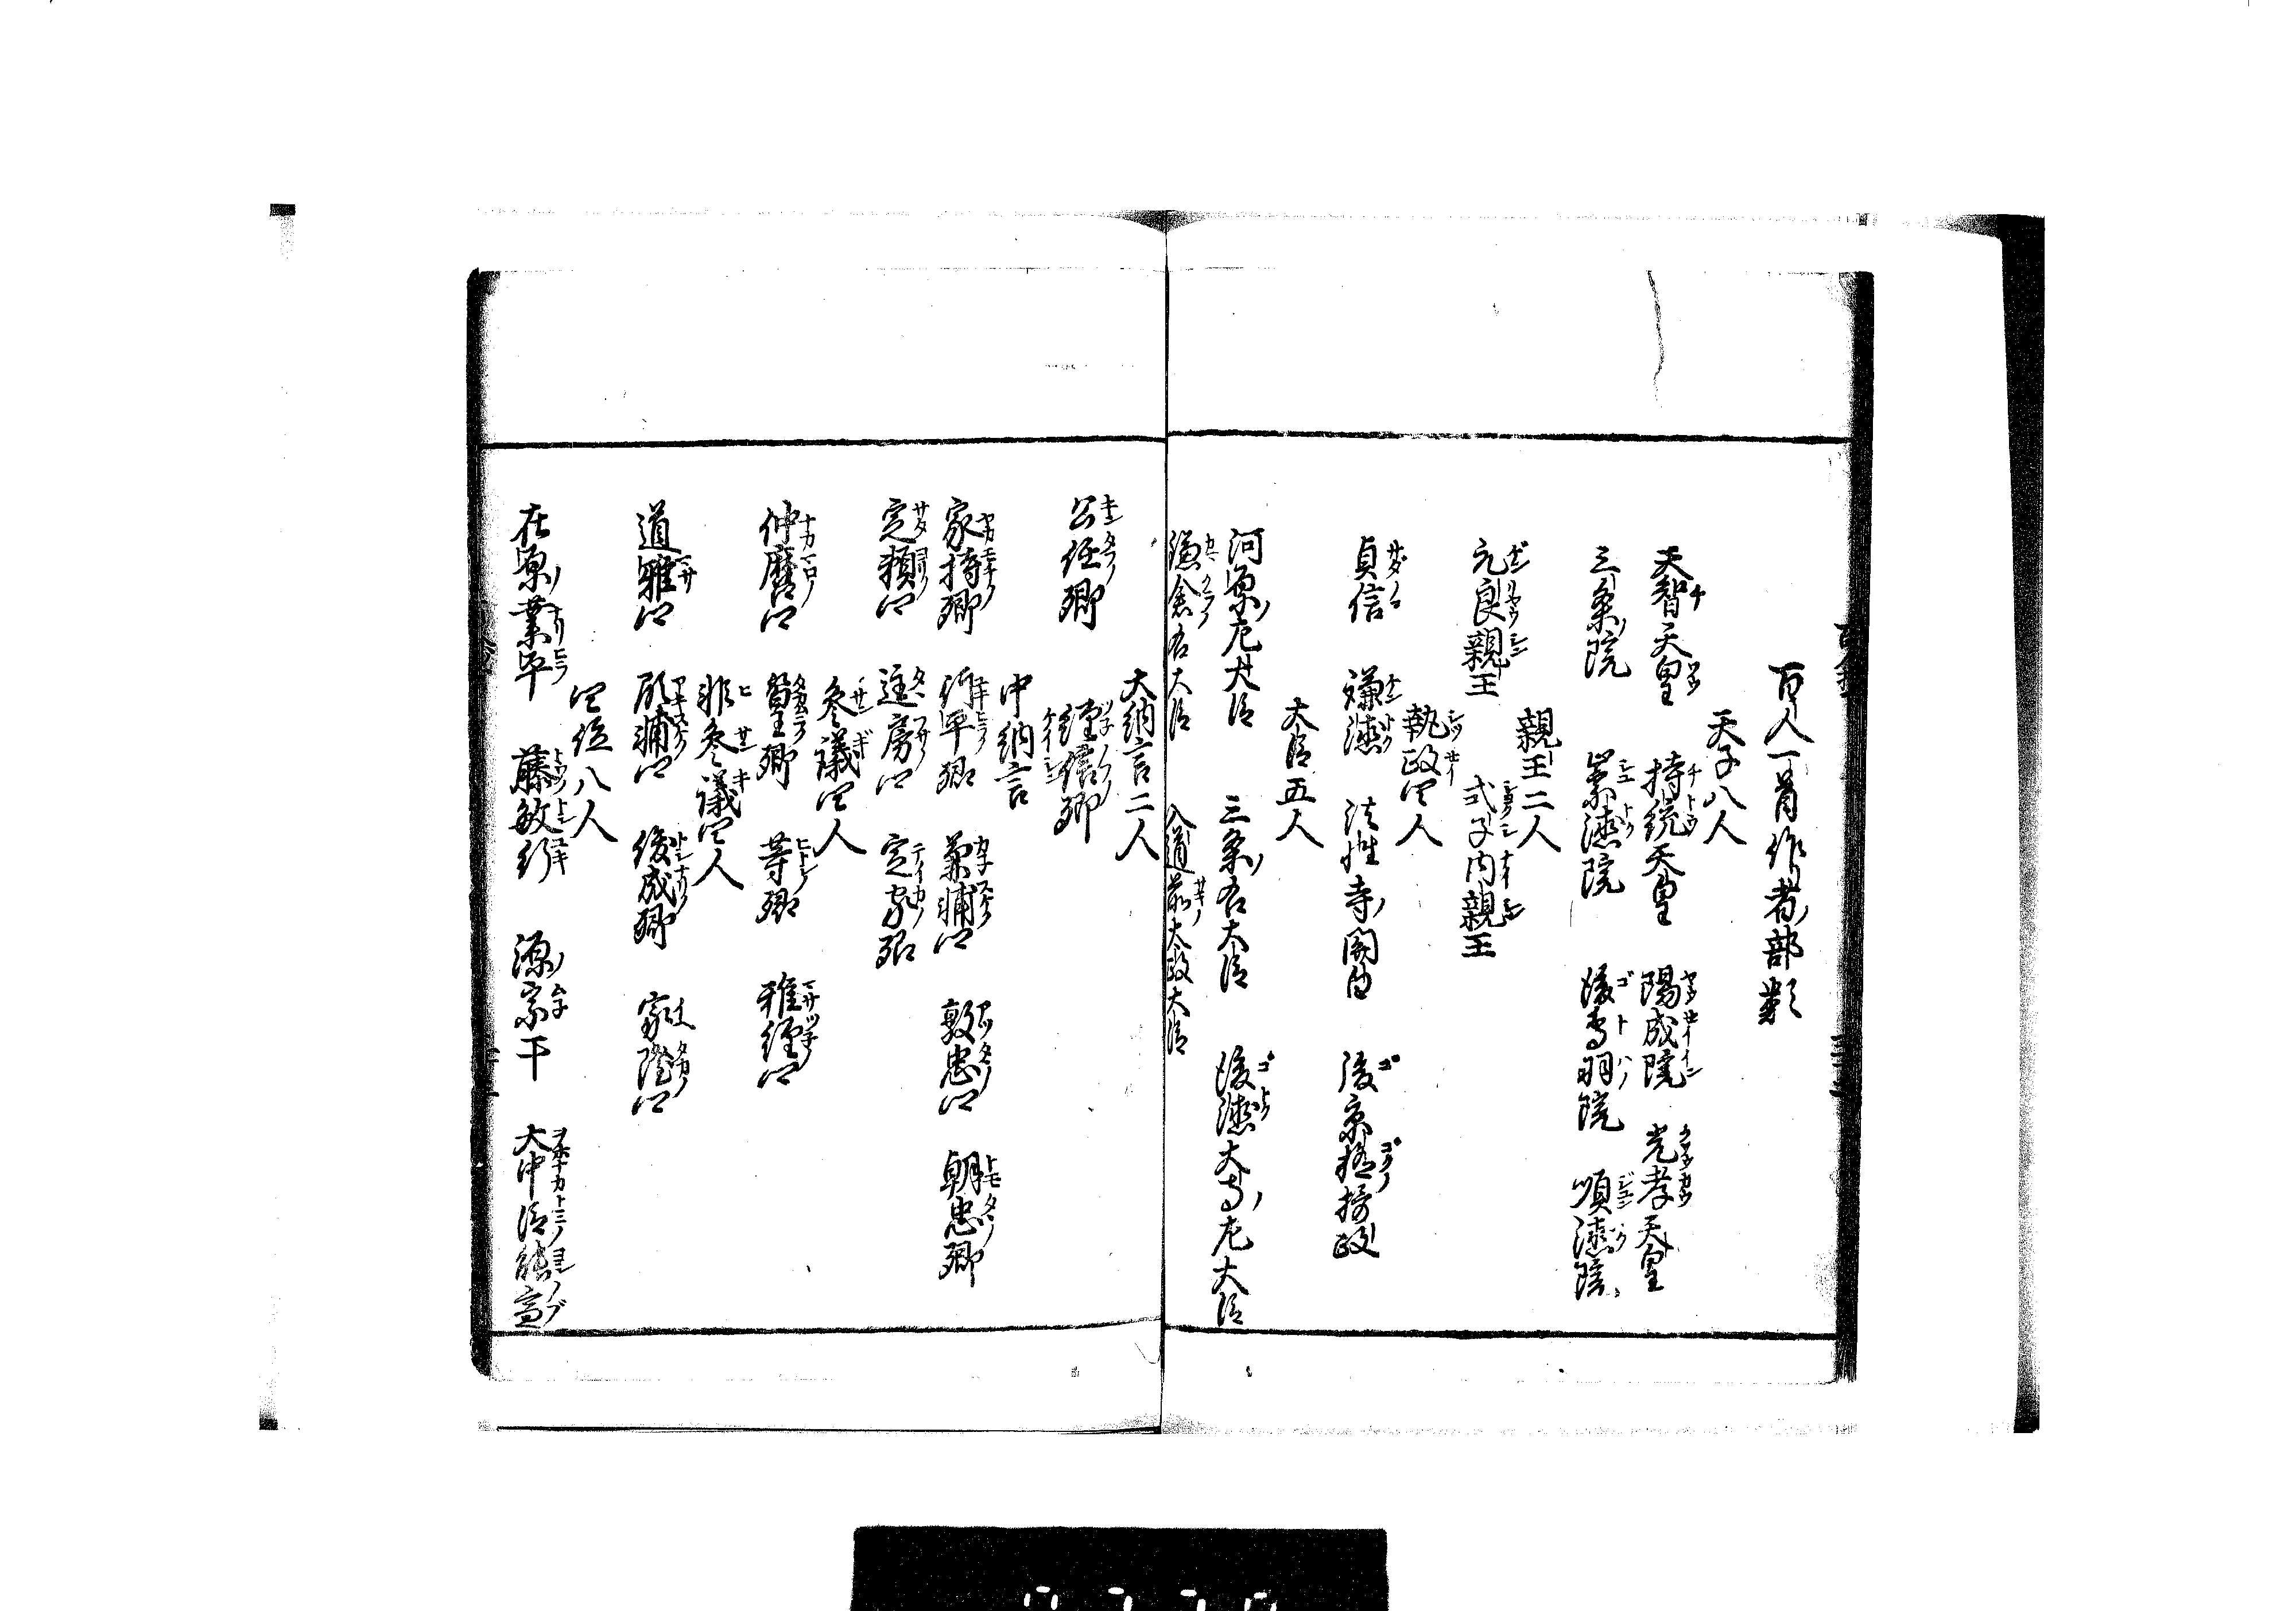 百人一首作者ノ部類
天子八人
天智天皇 持統天皇 陽成院 光孝天皇
三条ノ院 崇徳院 後鳥羽院 順徳院
親王二人
元良親王 式子内親王
執政四人
貞信 謙徳 法性寺ノ関白 後京極摂政
大臣五人
河原ノ左大臣 三条ノ右大臣 後徳大寺ノ左大臣
鎌倉右大臣 入道前太政大臣
大納言二人
公任卿 経信卿
中納言
家持卿 行平卿 兼輔卿 敦忠卿 朝忠卿
定頼卿 匡房卿 定家卿
参議四人
仲麿卿 篁卿 等卿 雅経卿
非参議四人
道雅卿 顕輔卿 俊成卿 家隆卿
四位八人
在原ノ業平 藤敏行 源ノ宗于 大中臣能宣